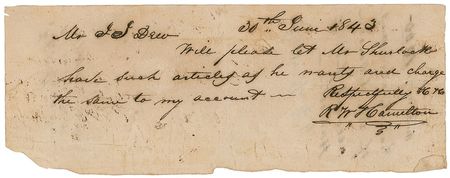 Mr J J Drew 30th June 1843
Will please let Mr Shurlock
have such articles as he wants and charge
the same to my account
Respectfully &c &c
R W Hamilton